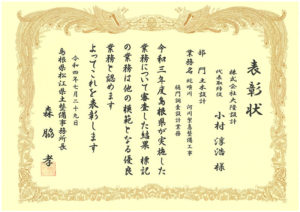 表彰状
株式会社大隆設計
代表取締役
小村淳浩 様
部門 土木設計
業務名 蛇喰川 河川緊急整備工事
樋門詳細設計業務
令和三年度島根県が実施した
業務について審査した結果 標記
の業務は他の模範となる優良
業務と認めます
よってこれを表彰します
令和四年七月二十九日
島根県松江県土整備事務所長
森脇 孝